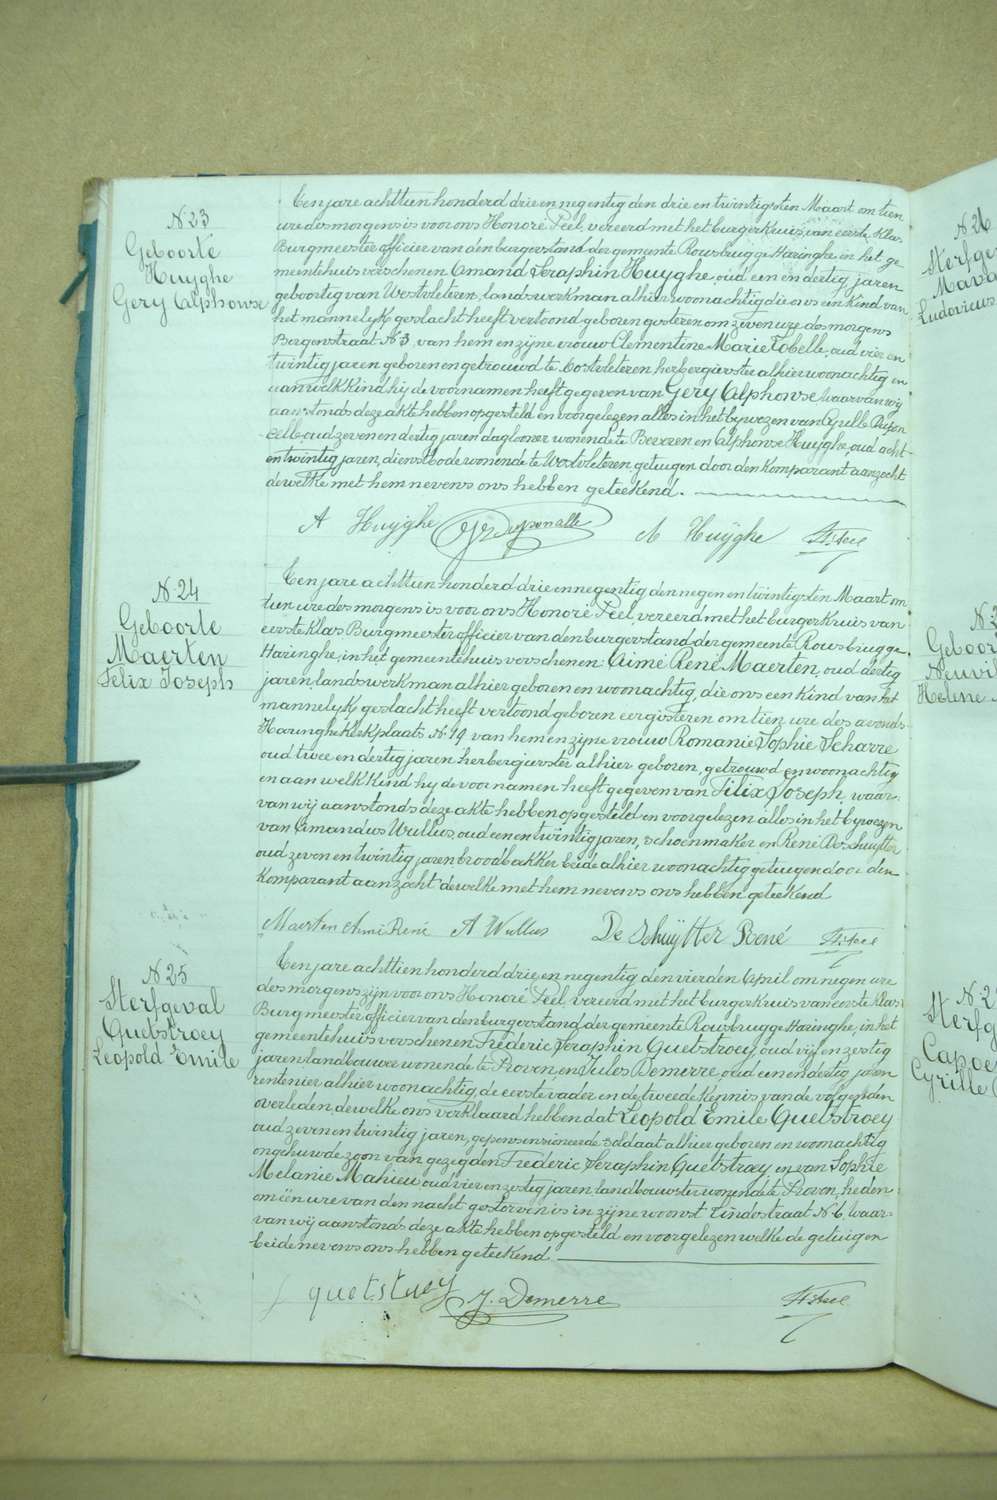 N 23
Geboorte
Huyghe
Gery Alphonse
Ten jare achttien honderd drie en negentig den drie en twintigsten Maart om tien
ure des morgens is voor ons Honoré Peel, vereerd met het burgerkruis van eerste klas
Burgmeester officier van den burgerstand der gemeente Rousbrugge Haringhe in het ge
meentehuis verschenen Amand Seraphin Huyghe, oud een en dertig jaren
geboortig van Westvleteren, landswerkman alhier woonachtig die ons een kind van
het mannelyk geslacht heeft vertoond geboren gisteren om zeven ure des morgens
Bergenstraat N 3, van hem en zyne vrouw Clementine Marie Tobelle, oud vier en
twintig jaren geboren en getrouwd te Oostvleteren herbergierster alhier woonachtig en
aan welk kind hy de voornamen heeft gegeven van Gery Alphonse waarvan wy
aanstonds deze akte hebben opgesteld en voorgelezen alles in het bywezen van Cyrille Dupon
celle, oud zeven en dertig jaren daglooner wonende te Beveren en Alphonse Huyghe, oud acht-
en twintig jaren, dienstbode wonende te Westvleteren, getuigen door den komparant aanzocht
dewelke met hem nevens ons hebben geteekend.
A Huÿghe
A Huÿghe
H. Peel
N 24
Geboorte
Maerten
Felix Joseph
Ten jare achttien honderd drie en negentig den negen en twintigsten Maart om
tien ure des morgens is voor ons Honoré Peel, vereerd met het burgerkruis van
eerste klas Burgmeester officier van den burgerstand der gemeente Rousbrugge-
Haringhe, in het gemeentehuis verschenen: Aimé René Maerten, oud dertig
jaren, landswerkman alhier geboren en woonachtig, die ons een kind van het
mannelyk geslacht heeft vertoond geboren eergisteren om tien ure des avonds
Haringhe Kerkplaats N 19 van hem en zyne vrouw Romanie Sophie Scharre
oud twee en dertig jaren herbergierster alhier geboren, getrouwd en woonachtig
en aan welk kind hy de voornamen heeft gegeven van Felix Joseph, waar-
van wij aanstonds deze akte hebben opgesteld en voorgelezen alles in het bywezen
van Amandus Wullus, oud een en twintig jaren, schoenmaker en René De Schuytter
oud zeven en twintig jaren broodbakker beide alhier woonachtig getuigen door den
komparant aanzocht dewelke met hem nevens ons hebben geteekend
Maerten Aimé René A Wullus De Schuÿtter René H. Peel
N 25
Sterfgeval
Quetstroey
Leopold Emile
Ten jare achttien honderd drie en negentig den vierden April om negen ure
des morgens zijn voor ons Honoré Peel, vereerd met het burgerkruis van eerste klas
Burgmeester officier van den burgerstand der gemeente Rousbrugge Haringhe, in het
gemeentehuis verschenen Frederic Seraphin Quetstroey, oud vijf en zestig
jaren, landbouwer wonende te Proven, en Jules Demerre, oud een en dertig jaren
rentenier alhier woonachtig, de eerste vader en de tweede kennis van de volgenden
overleden, dewelke ons verklaard hebben dat Leopold Emile Quetstroey
oud zeven en twintig jaren, gepensioneerde soldaat alhier geboren en woonachtig
ongehuwde zoon van gezegden Frederic Seraphin Quetstroey en van Sophie
Melanie Mahieu oud vier en zestig jaren, landbouwster wonende te Proven, heden
om één ure van den nacht gestorven is in zyne woonst Lindestraat N 6, waar-
van wij aanstonds deze akte hebben opgesteld en voorgelezen welke de getuigen
beide nevens ons hebben geteekend
quetstroey J. Demerre H. Peel
N 26
Ludovicus
Geboor
Helene
Sterfg
Cyrille